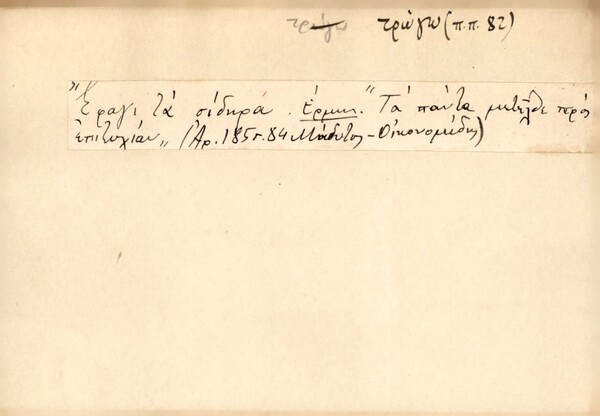 τρώγω τρώγω (π.π. 82)
"Ἔφαγι τὰ σίδηρα. Ἑρμην." Τὰ πάντα μετῆλθε πρὸς
ἐπιτυχίαν„ (Ἀρ. 185 σ. 84 Μάδυτος - Οἰκονομίδης)